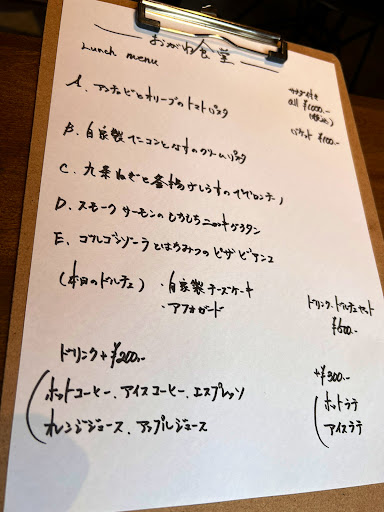 おがわ食堂
Lunch menu
サラダ付き
all ¥1000.-
(税込)
バケット ¥100.-
A. アンチョビとオリーブのトマトパスタ
B. 自家製ベーコンとなすのクリームパスタ
C. 九条ねぎと釜揚げしらすのペペロンチーノ
D. スモークサーモンのもちもちニョッキグラタン
E. ゴルゴンゾーラとはちみつのピザ ビアンコ
(本日のドルチェ) ・自家製チーズケーキ
・アフォガード
ドリンク・ドルチェセット
¥500.-
ドリンク+¥200.-
ホットコーヒー、アイスコーヒー、エスプレッソ
オレンジジュース、アップルジュース
+¥300.-
ホットラテ
アイスラテ